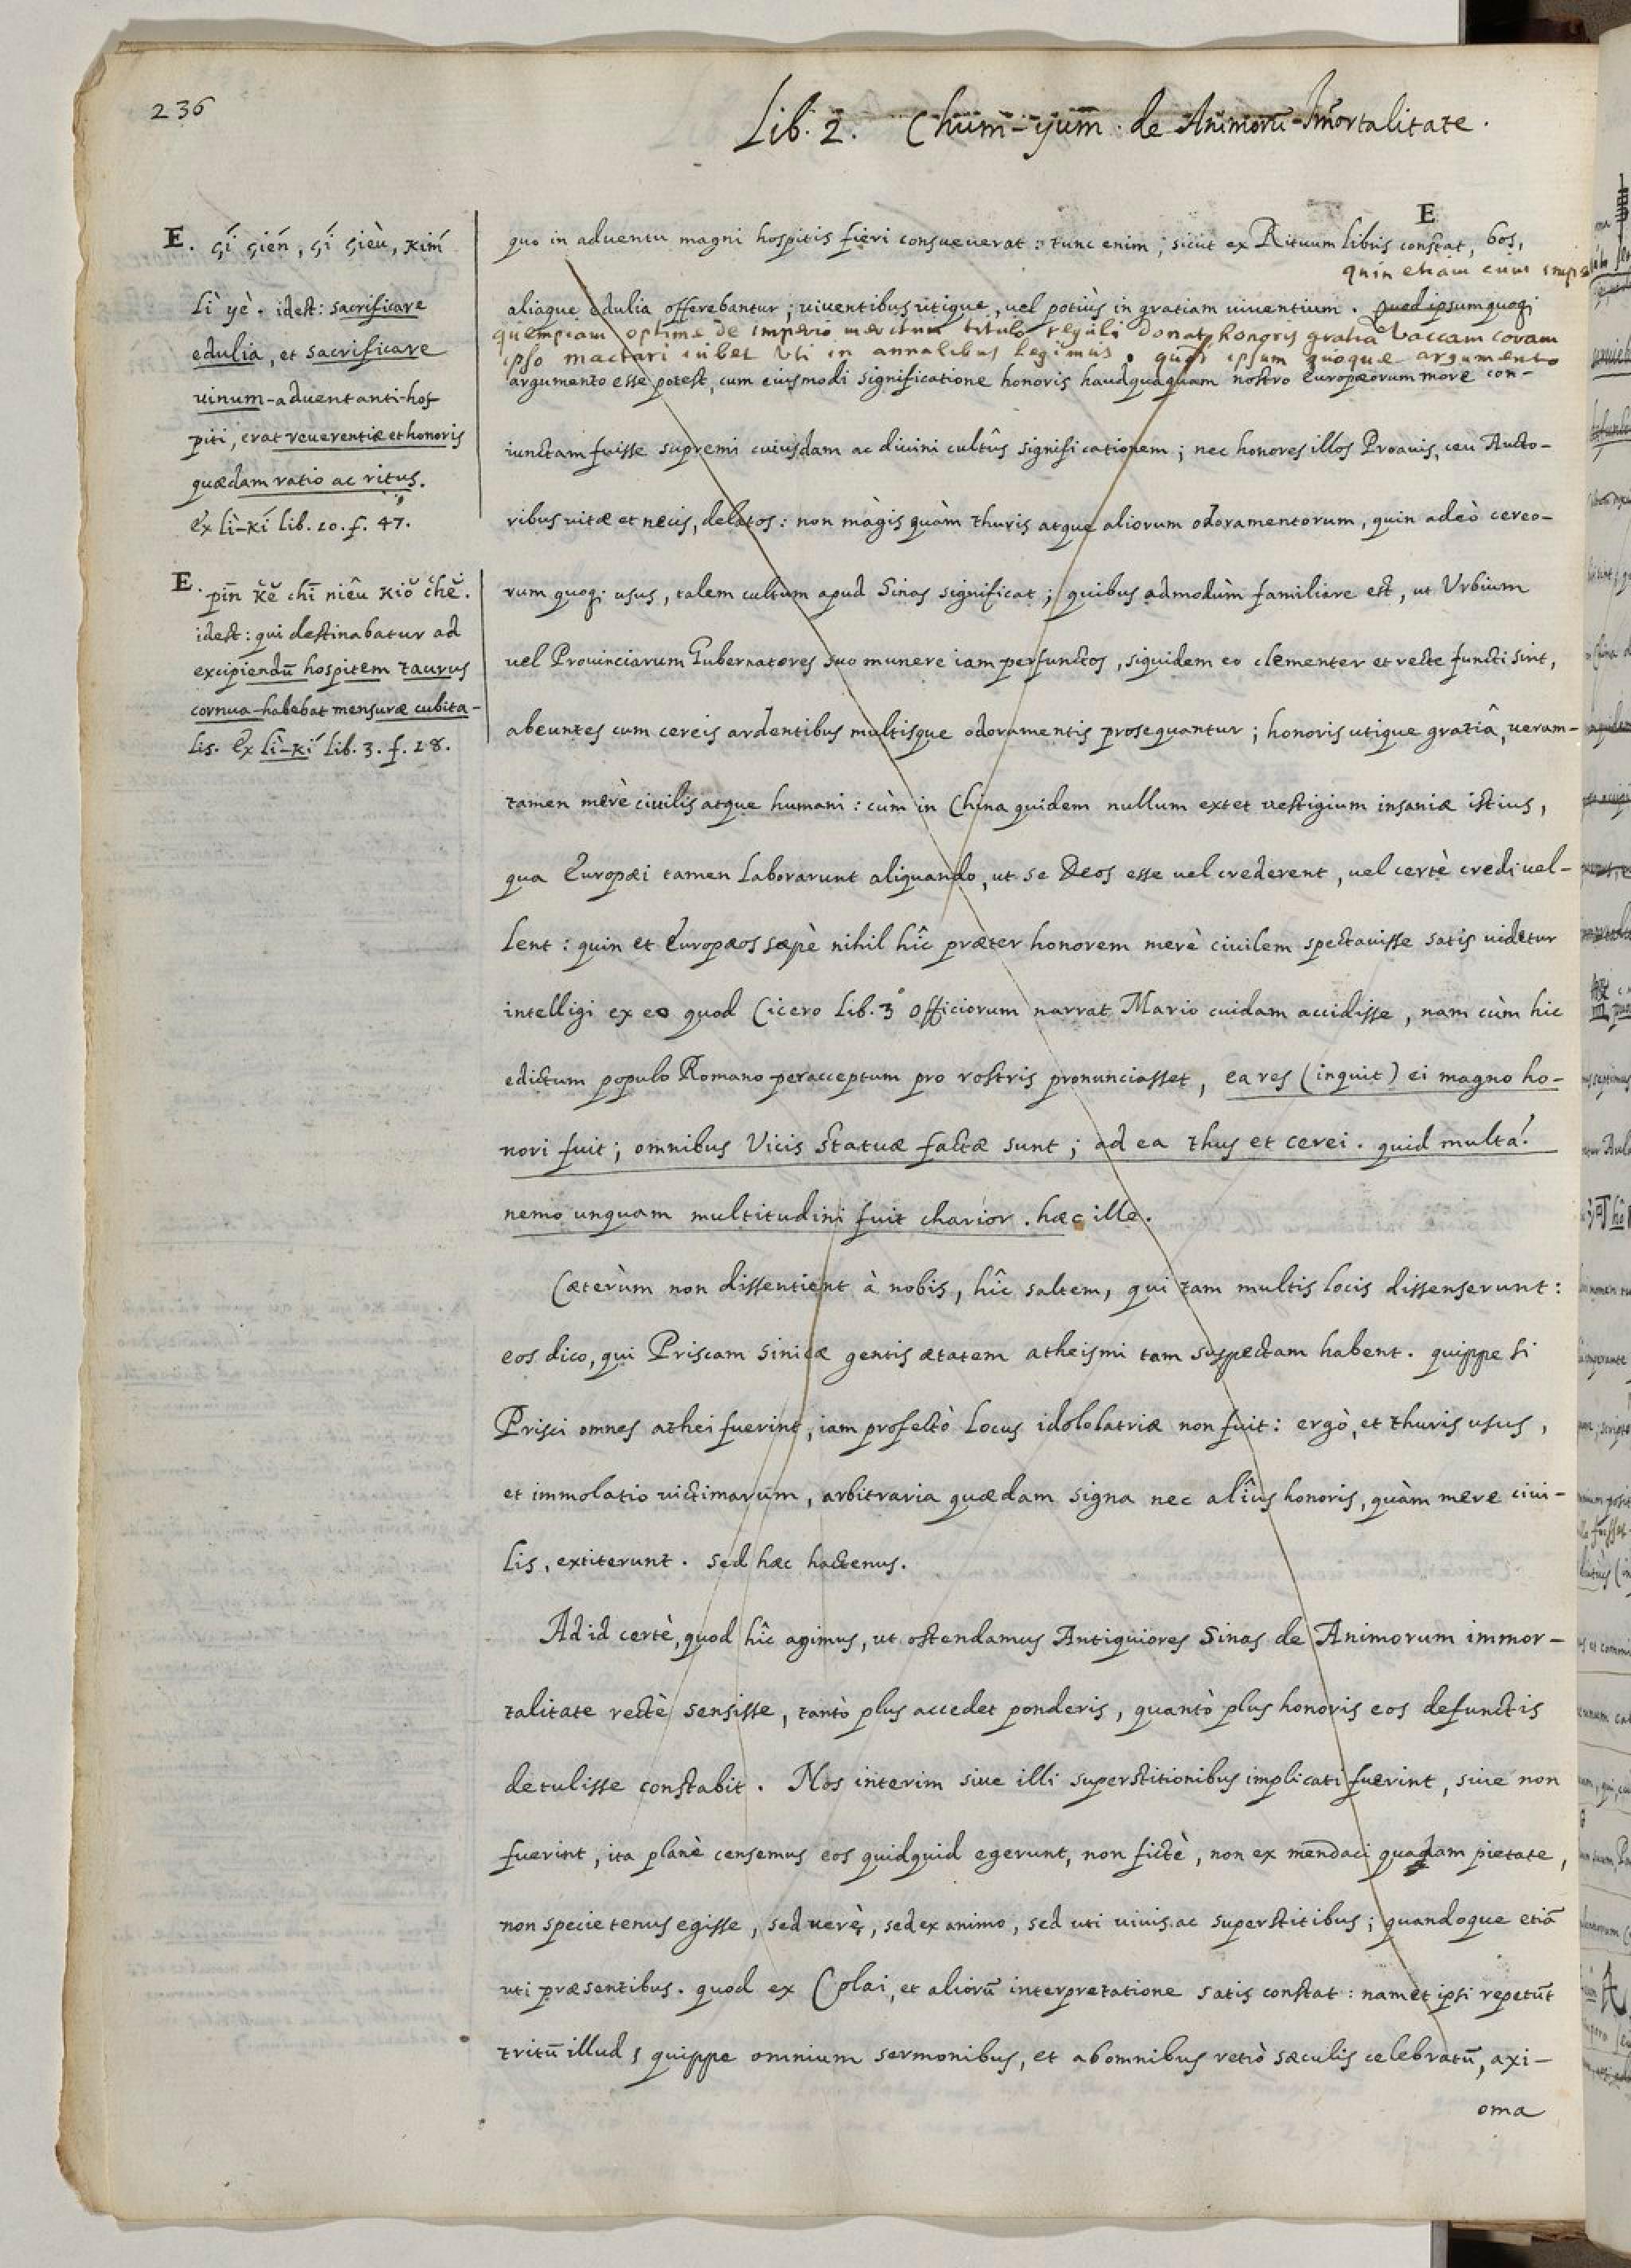 236
Lib. 2. Chum̄-yum̄ : de Animorū-Im̄ortalitate.
E. çí çién, çí çièu, kim̄
lì yè. idest: sacrificare
edulia, et sacrificare
uinum-aduentanti-hos
piti, erat reuerentiæ et honoris
quædam ratio ac ritus.
Ex lì-kí lib. 10. f. 47.
E. pin̄ kĕ chī niêu kiŏ chĕ.
idest: qui destinabatur ad
excipiendū hospitem taurus
cornua-habebat mensuræ cubita-
lis. Ex lì-kí lib. 3. f. 28.
E
quo in aduentu magni hospitis fieri consueuerat: tunc enim, sicut ex Rituum libris constat, bos,
quin etiam cum
aliaque edulia offerebantur; uiuentibus utique, uel potiùs in gratiam uiuentium. Quod ipsum quoq;
quempiam optime de imperio meritum titulo reguli donat, honoris gratiâ vaccam coram
ipso mactari iubet uti in annalibus legimus. quod ipsum quoque argumento
argumento esse potest, cum eiusmodi significatione honoris haudquaquam nostro Europæorum more con-
iunctam fuisse supremi cuiusdam ac diuini cultûs significationem; nec honores illos Proauis, ceu Aucto-
ribus uitæ et necis, delatos: non màgis quàm thuris atque aliorum odoramentorum, quin adeò cereo-
rum quoq; usus, talem cultum apud Sinas significat; quibus admodùm familiare est, ut Vrbium
uel Prouinciarum Gubernatores suo munere iam perfunctos, siquidem eo clementer et recte functi sint,
abeuntes cum cereis ardentibus multisque odoramentis prosequantur; honoris utique gratiâ, veram-
tamen merè ciuilis atque humani: cùm in China quidem nullum extet vestigium insaniæ istius,
qua Europæi tamen laborarunt aliquando, ut se Deos esse uel crederent, uel certè credi uel-
lent: quin et Europæos sæpè nihil hîc præter honorem merè ciuilem spectauisse satis uidetur
intelligi ex eo quod Cicero Lib. 3° Officiorum narrat Mario cuidam accidisse, nam cùm hic
edictum populo Romano peracceptum pro rostris pronunciasset, ea res (inquit) ei magno ho-
nori fuit; omnibus Vicis Statuæ factæ sunt; ad ea thus et cerei. quid multa?
nemo unquam multitudini fuit charior. hæc ille.
Cæterùm non dissentient à nobis, hîc saltem, qui tam multis locis dissenserunt:
eos dico, qui Priscam Sinicæ gentis ætatem atheismi tam suspectam habent. quippe si
Prisci omnes athei fuerint, iam profectò locus idololatriæ non fuit: ergò, et thuris usus,
et immolatio uictimarum, arbitraria quædam signa nec alîus honoris, quàm mere ciui-
lis, extiterunt. Sed hæc hactenus.
Ad id certè, quod hîc agimus, ut ostendamus Antiquiores Sinas de Animorum immor-
talitate rectè sensisse, tantò plus accedet ponderis, quantò plus honoris eos defunctis
detulisse constabit. Nos interim siue illi superstitionibus implicati fuerint, siue non
fuerint, ita planè censemus eos quidquid egerunt, non fictè, non ex mendaci quadam pietate,
non specie tenus egisse, sed uerè, sed ex animo, sed uti uiuis ac superstitibus; quandoque etiā
uti præsentibus. quod ex Colai, et aliorū interpretatione satis constat: nam et ipsi repetūt
tritū illud, quippe omnium sermonibus, et ab omnibus retrò sæculis celebratū, axi-
oma